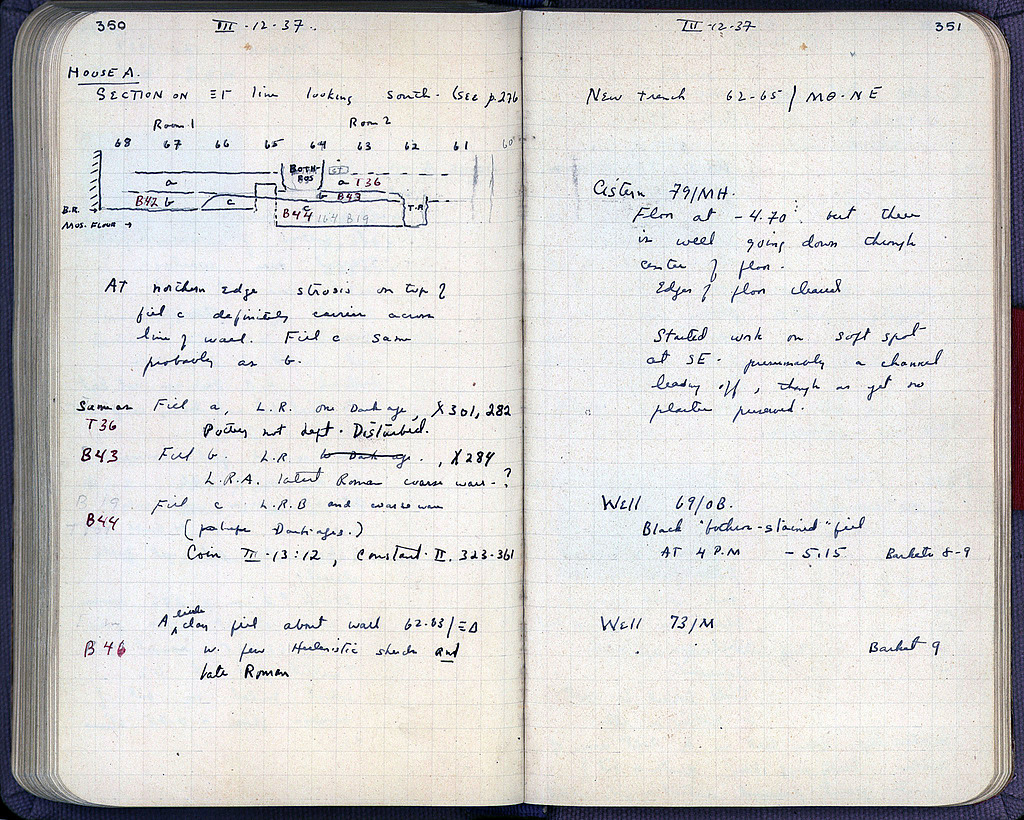 350
III-12-37.
HOUSE A.
SECTION ON ΞΓ line looking south. (SEE p. 276
Room 1 Room 2
68 67 66 65 64 63 62 61 60
BOTH-
ROS
a a T36
B42 b c b B43
B.R. c T.R.
B44 164 B19
MOS. FLOOR →
AT northern edge strosis on top of
fill c definitely carries across
line of wall. Fill c same
probably as b.
Same as Fill a, L.R. one Dark age, X301, 282
T36 Pottery not kept. Disturbed.
B43 Fill b. L.R. to Dark age., X284
L.R.A. latest Roman coarse ware-?
B 19 Fill c L.R.B and coarse ware
B44 (perhaps Dark ages.)
Coin III-13:12, Constant. II. 323-361
little
A clay fill about wall 62.63/ΞΔ
B46 w. few Hellenistic sherds and
Late Roman
III-12-37
351
New trench 62-65/ΜΘ-ΝΕ
Cistern 79/ΜΗ.
Floor at -4.70 but there
is well going down through
center of floor.
Edges of floor cleared
Started work on soft spot
at SE- presumably a channel
leading off, though as yet no
plaster preserved.
Well 69/ΟΒ.
Black "bothros-stained" fill
AT 4 P.M -5.15 Baskets 8-9
Well 73/Μ
Basket 9